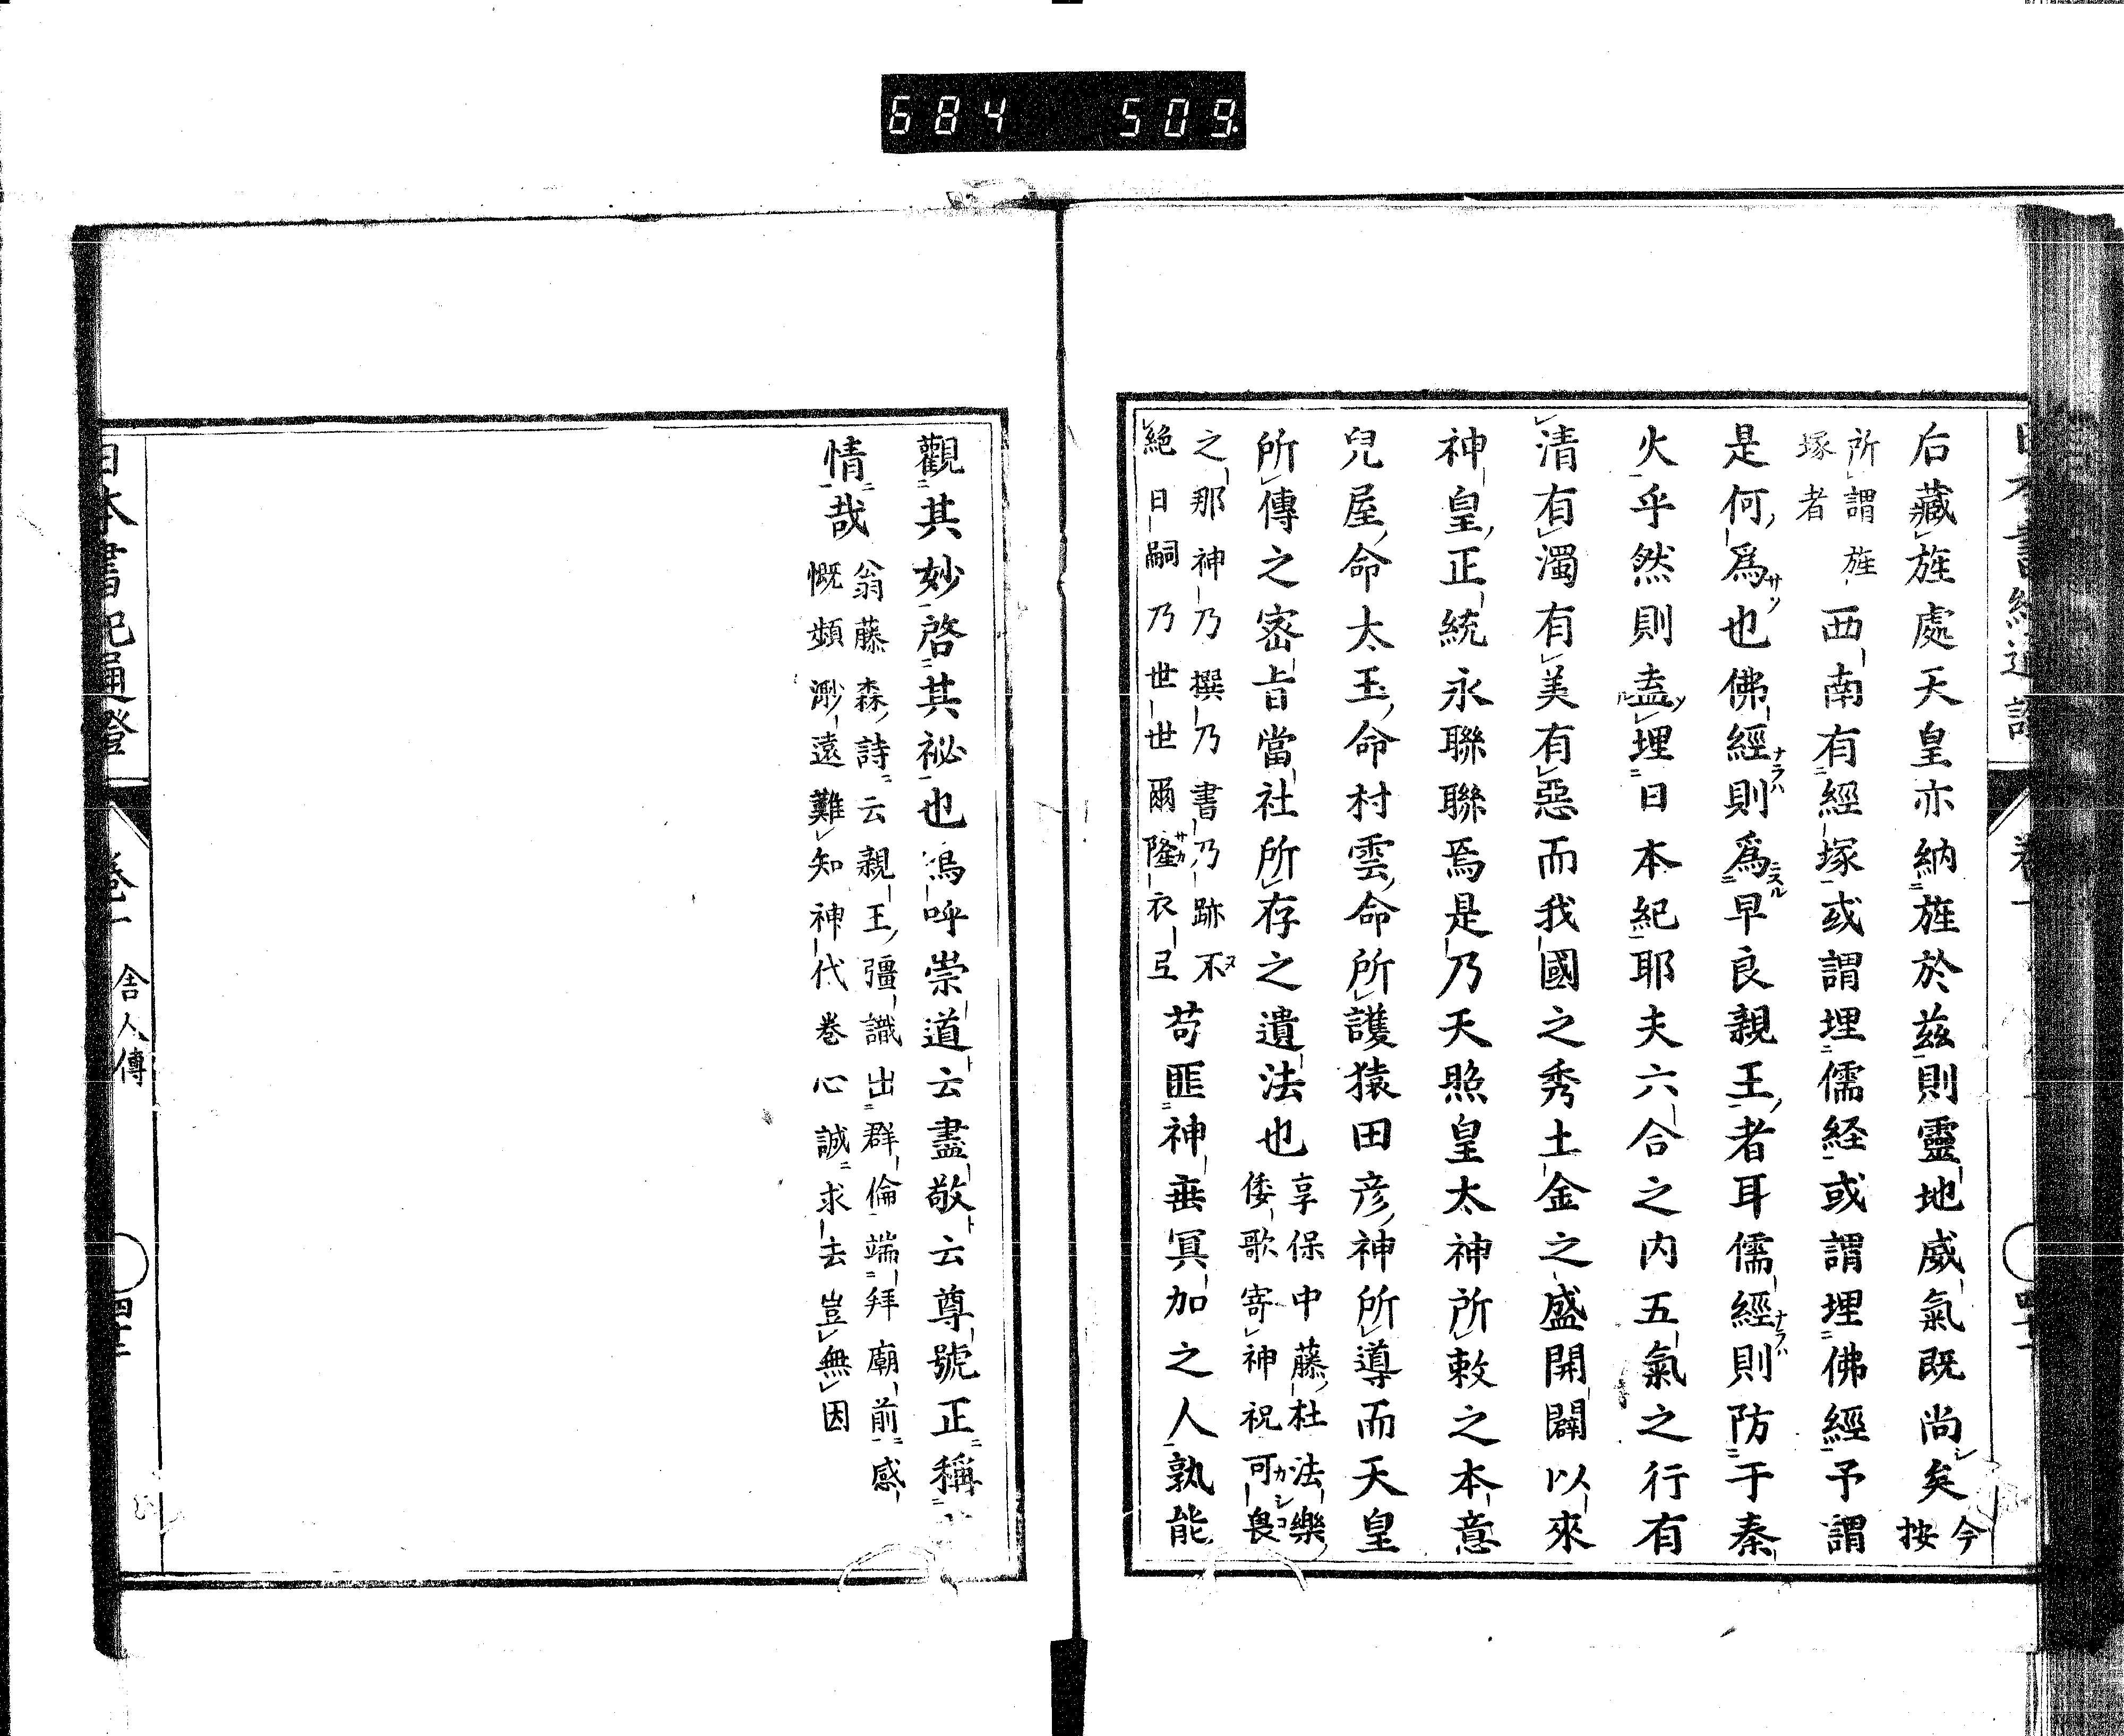 684 509
后藏旌處天皇亦納旌於玆則靈地威氣既尚矣今按
所謂旌塚者西南有經塚或謂埋儒経或謂埋佛經予謂
是何爲也佛經則爲早良親王者耳儒經則防于秦
火乎然則盍埋日本紀耶夫六合之内五氣之行有
清有濁有美有惡而我國之秀土金之盛開闢以來
神皇正統永聯聯焉是乃天照皇太神所敕之本意
兒屋命太玉命村雲命所護猿田彦神所導而天皇
所傳之密旨當社所存之遺法也享保中藤杜法樂倭歌寄神祝可畏
之那神乃撰乃書乃跡不絶日嗣乃世世爾隆衣弖苟匪神垂冥加之人孰能
觀其妙啓其祕也嗚呼崇道云盡敬云尊號正稱
情哉翁藤森詩云親王彊識出群倫端拜廟前感慨頻渺遠難知神代巻心誠求去豈無因
日本書紀通證
卷一
舎人傳
四十二